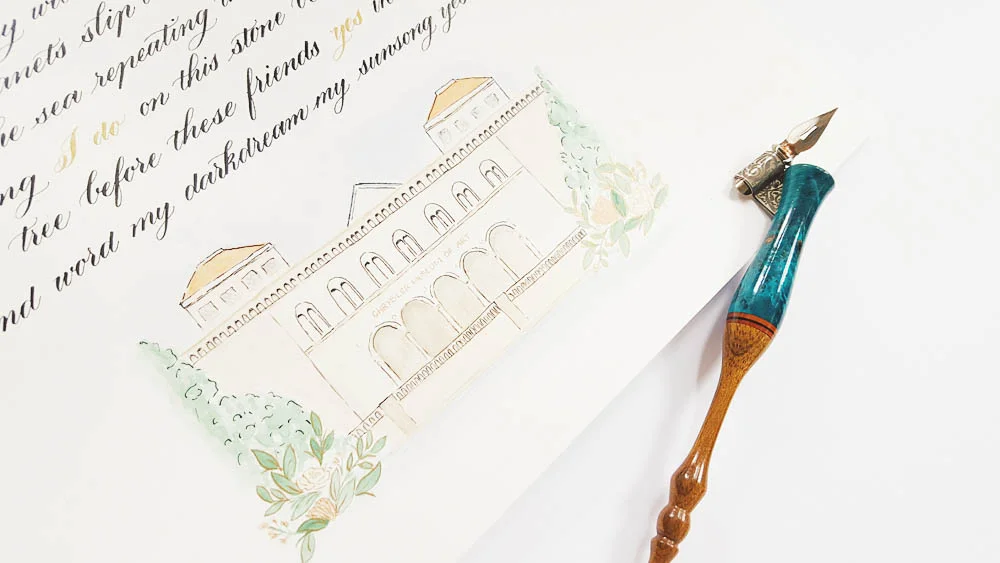 anets slip
he sea repeating
ng I do on this stone
tree before these friends yes in
nd word my darkdream my sunsong yes
CHRYSLER MUSEUM OF ART